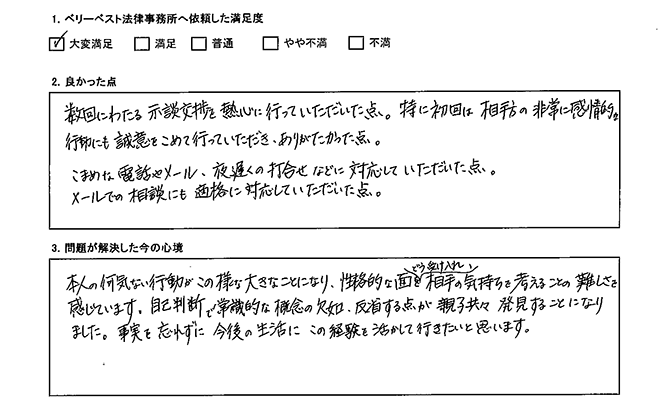 1. ベリーベスト法律事務所へ依頼した満足度
大変満足 満足 普通 やや不満 不満
2. 良かった点
数回にわたる示談交渉を熱心に行っていただいた点。特に初回は相手方の非常に感情的な
行動にも誠意をこめて行っていただき、ありがたかった点。
こまめな電話やメール、夜遅くの打合せなどに対応していただいた点。
メールでの相談にも適格に対応していただいた点。
3. 問題が解決した今の心境
どう受け入れ、
本人の何気ない行動がこの様な大きなことになり、性格的な面を相手の気持ちを考えることの難しさを
感じています。自己判断で常識的な概念の欠如、反省する点が親子共々発見することになり
ました。事実を忘れずに今後の生活にこの経験を活かして行きたいと思います。